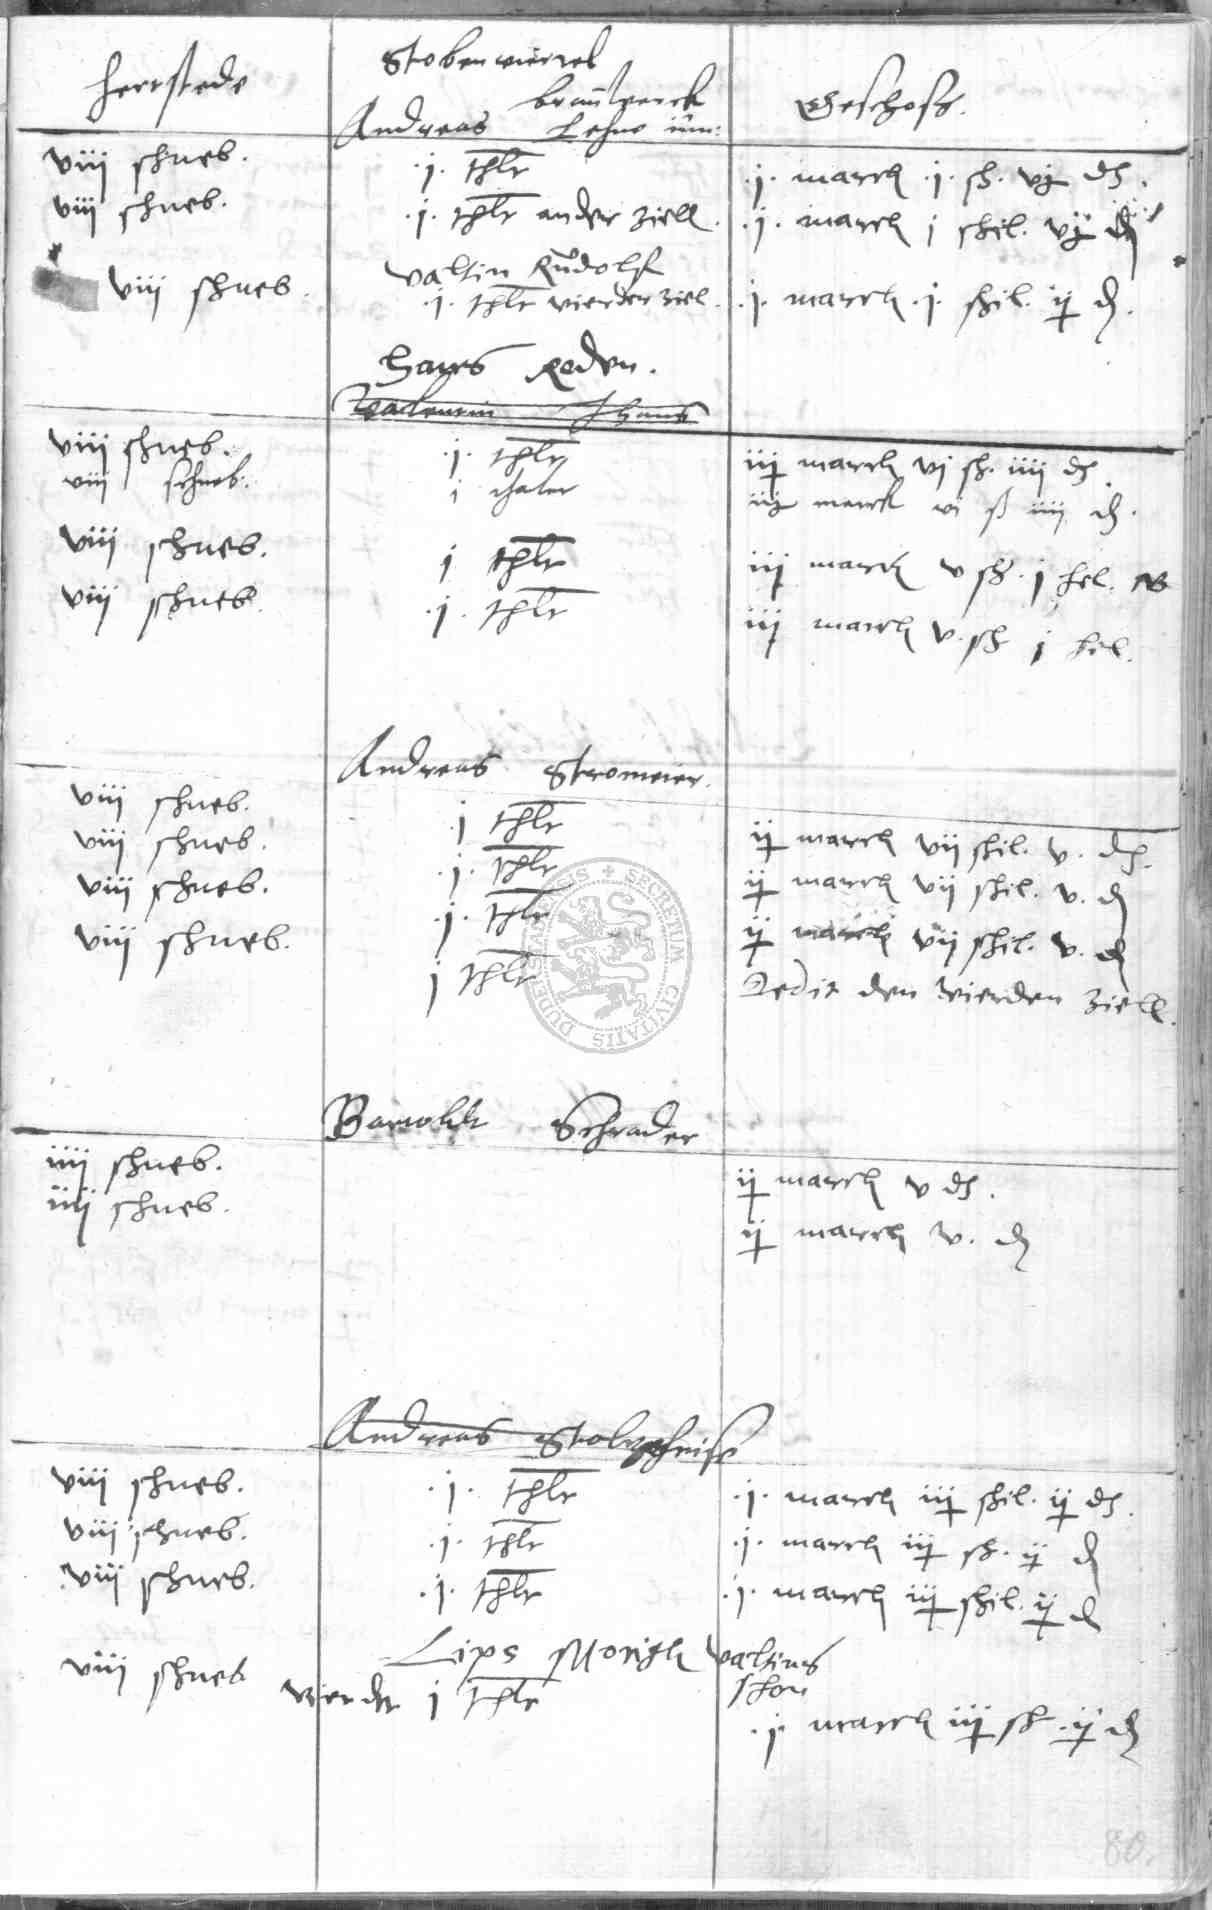 hertstede Stobenviertel Geschosz.
braulperck
Andreas Lehne
viij schneb. .j. thlr .j. marck .j. sh. vj d.
viij schneb. .j. thlr ander Ziell. .j. marck j shil. vj d
Valtin Rudolff
viij schneb. .j. thlr vierder Ziel. .j. marck .j. shil. ij d.
Hans Roden.
Valentin Hans
viij schneb. .j. thlr iij marck vi sh. iiij d.
viij schneb. i thaler iij marck vi ß iiij d.
viij schneb. j thlr iij marck v sh. j hel.
viij schneb. .j. thlr iij marck v. sh j hel.
Andreas Stromeier.
viij schneb. j thlr ij marck vij shil. v. d.
viij schneb. .j. thlr ij marck vij shil. v. d
viij schneb. .j. thlr ij marck vij shil. v. d
viij schneb. j thlr Dedit den vierden Ziell.
SECRETUM CIVITATIS DUDERSTADENSIS
Barwoldt Schrader
iiij schneb. ij marck v d.
iiij schneb. ij marck v. d
Andreas
viij schneb. .j. thlr .j. marck iij shil. ij d.
viij schneb. .j. thlr .j. marck iij sh. ij d
viij schneb. .j. thlr .j. marck iij shil. ij d
Lips Morith Valtins
shon
viij schneb vierder j thlr .j. marck iij sh .ij d
80.